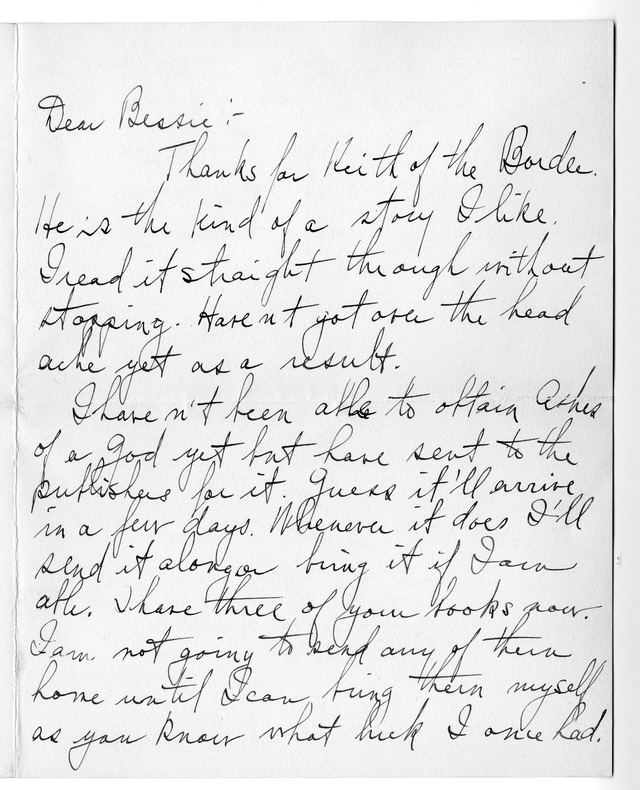 Dear Bessie:-
Thanks for Keith of the Border.
He is the kind of a story I like.
I read it straight through without
stopping. Haven't got over the head
ache yet as a result.
I haven't been able to obtain Ashes
of a God yet but have sent to the
publishers for it. Guess it'll arrive
in a few days. Whenever it does I'll
send it along or bring it if I am
able. I have three of your books now.
I am not going to send any of them
home until I can bring them myself
as you know what luck I once had.